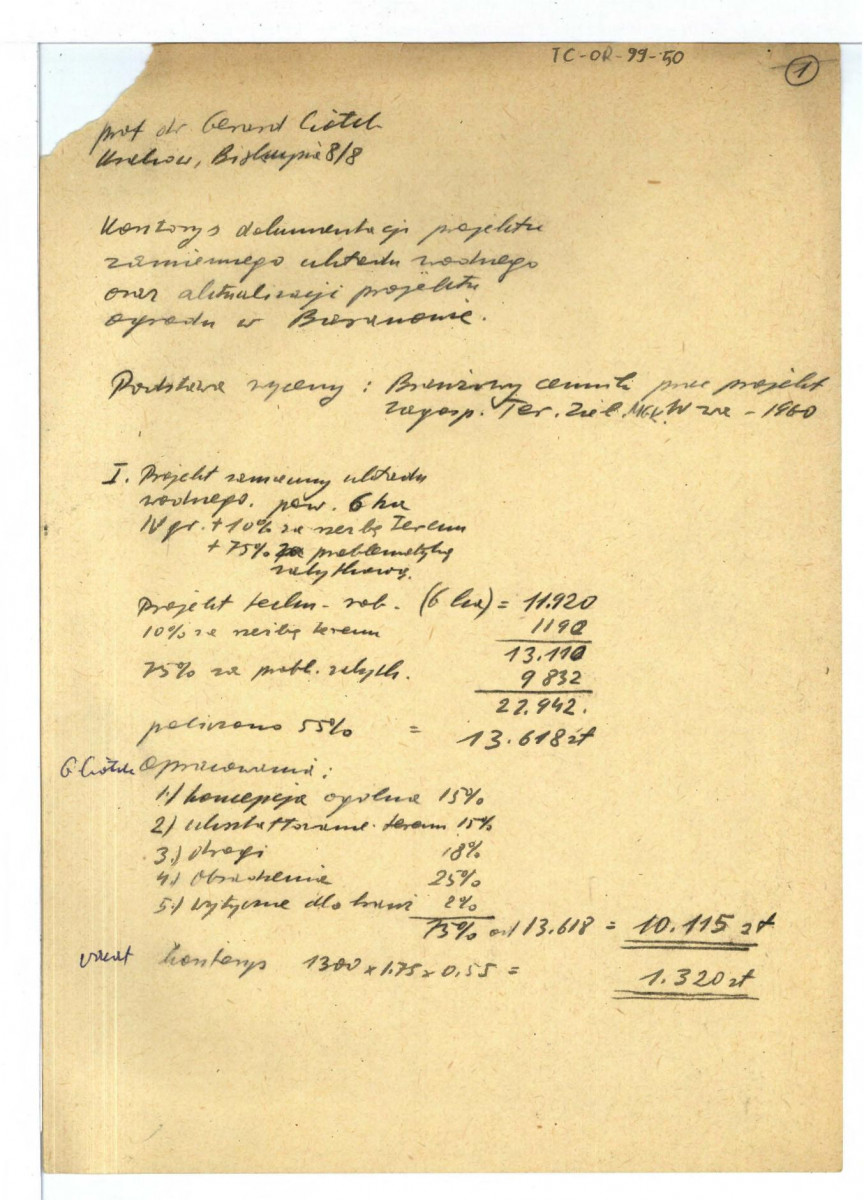 TC-OR-99-50
1
prof dr Gerard Ciołek
Kraków, Biskupia 8/8
Kosztorys dokumentacji projektu
zamiennego układu wodnego
oraz aktualizacji projektu
ogrodu w Baranowie.
Podstawa wyceny : Branżowy cennik prac projekt
zagosp. Ter. Ziel. MGK. W-wa - 1960
I. Projekt zamienny układu
wodnego. pow. 6 ha
IV gr. + 10% za rzeźbę terenu
+ 75% za problematykę
zabytkową.
Projekt techn - rob. (6 ha) = 11.920
10% za rzeźbę terenu 1190
13.110
75% za probl. zabytk. 9 832
22.942.
policzono 55% = 13.618 zł
G Ciołek Opracowania :
1.) koncepcja ogólna 15%
2) ukształtowanie terenu 15%
3.) drogi 18%
4.) obsadzenia 25%
5.) wytyczne dla 2%
75% od 13.618 = 10.115 zł
kosztorys 1300 x 1.75 x 0.55 = 1.320 zł